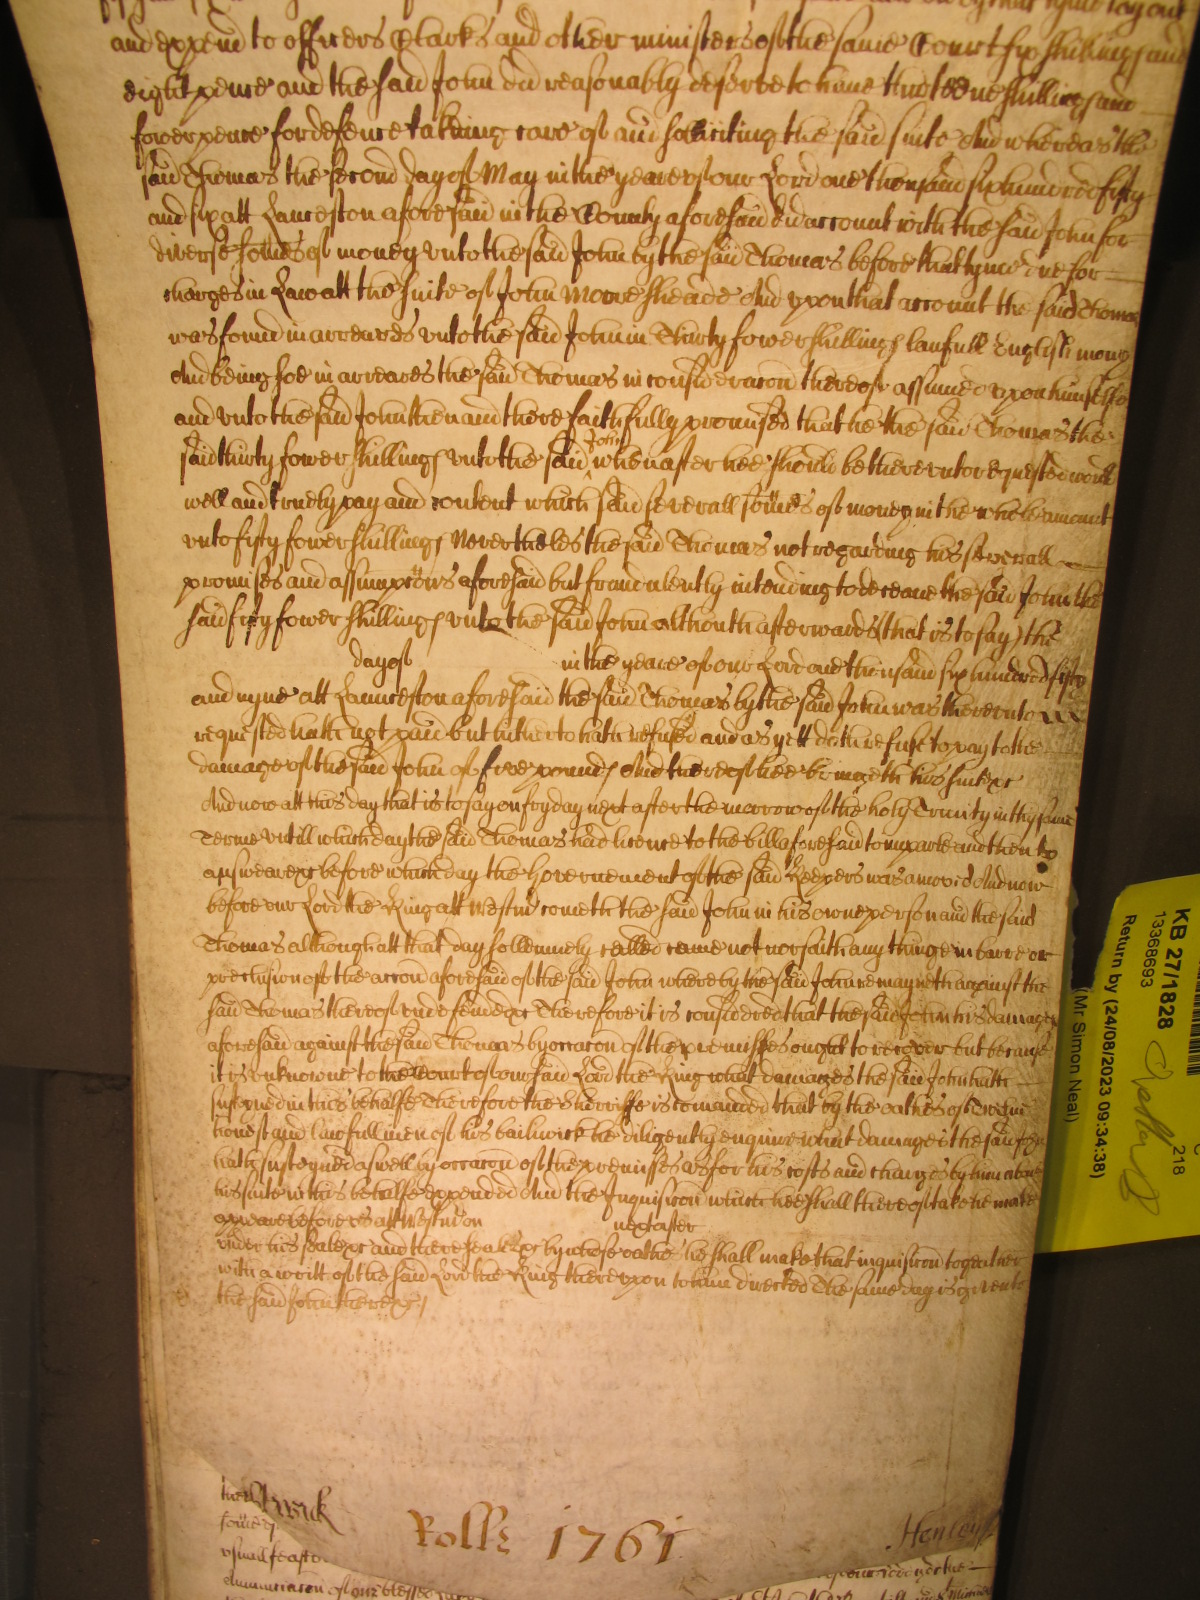 and expend to officers Clarks and other ministers of the same Court six shillings and
eight pence and the said John did reasonably deserve to have thirteene shillings and
fower pence for defence takeing care of and solliciting the said suite And whereas the
said Thomas the second day of May in the yeare of our Lord one thousand six hundred fifty
and six att Lanceston aforesaid in the County aforesaid did account with the said John for
diverse somes of money unto the said John by the said Thomas before that tyme due for
charges in Law att the suite of John Moresheade And upon that account the said Thomas
was found in arreares unto the said John in Thirty fower shillings lawfull English mony
And being soe in arreares the said Thomas in consideracon thereof assumed upon himselfe
and unto the said John then and there faithfully promised that he the said Thomas the
said thirty fower shillings unto the said John when after hee should be thereunto requested would
well and truely pay and content which said severall somes of money in the whole amount
unto fifty fower shillings Neverthelesse the said Thomas not regarding his severall
promises and assumpcons aforesaid but fraudulently intending to deceave the said John the
said fifty fower shillings unto the said John although afterwards (that is to say) the
day of in the yeare of our Lord one thousand six hundred fifty
and nyne att Lanceston aforesaid the said Thomas by the said John was thereunto
requested hath not paid but hitherto hath refused and as yett doth refuse to pay to the
damage of the said John of five pounds And thereof hee bringeth his suite &c
And now att this day that is to say on fryday next after the morrow of the holy Trinity in this same
Terme untill which day the said Thomas had licence to the bill aforesaid to imparle and then to
answeare &c before which day the Governement of the said Keepers was amoved And now
before our Lord the King att Westmr cometh the said John in his owne person and the said
Thomas although att that day sollemnely called came not nor saith any thinge in barre or
preclusion of the accon aforesaid of the said John whereby the said John remayneth against the
said Thomas thereof undefended &c Therefore it is considered that the said John his damages
aforesaid against the said Thomas by occacon of the premisses ought to recover but because
it is unknowne to the Court of our said Lord the King what damages the said John hath
susteyned in this behalfe Therefore the Sherriffe is comanded that by the oathes of twelve
honest and lawfull men of his bailiwick he diligently enquire what damages the said John
hath susteyned aswell by occacon of the premisses as for his costs and charges by him about
his suite in this behalfe expended And the Inquisicon which hee shall thereof take he make
appeare before us att Westmr on next after
under his seale &c and the seales &c by whose oathes he shall make that inquisicon together
with a writt of the said Lord the King thereupon to him directed The same day is given to
the said John there &c
Rolle 1761
Henley
usuall feast
Annunciacon of our blessed
KB 27/1828
13368693
218
Return by (24/08/2023 09:34:38)
(Mr Simon Neal)